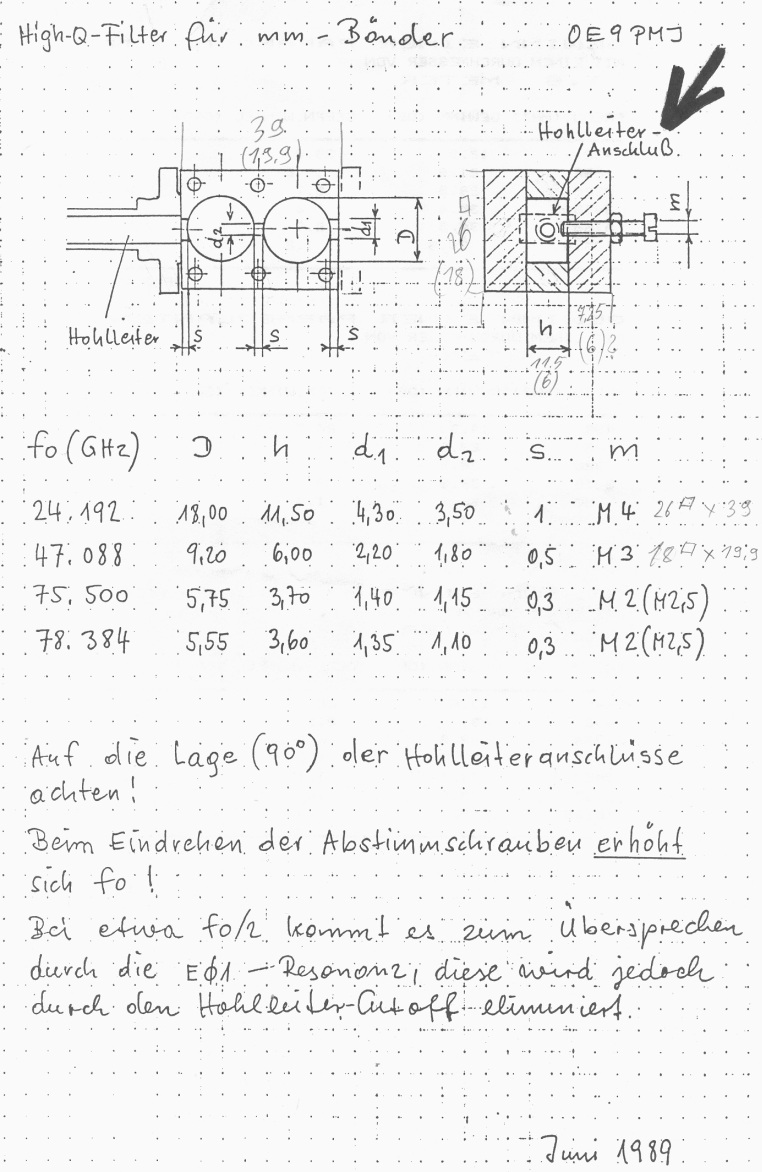 High-Q-Filter für mm-Bänder OE9PMJ
39
(19,9)
Hohlleiter-
Anschluß
d2
d1
D
□
26
(18)
m
Hohlleiter
s s s
h
11,5
(6)
7,25
(6)?
fo (GHz) D h d1 d2 s m
24.192 18,00 11,50 4,30 3,50 1 M4 26□ x 39
47.088 9,20 6,00 2,20 1,80 0,5 M3 18□ x 19,9
75.500 5,75 3,70 1,40 1,15 0,3 M2 (M2,5)
78.384 5,55 3,60 1,35 1,10 0,3 M2 (M2,5)
Auf die Lage (90°) der Hohlleiteranschlüsse
achten!
Beim Eindrehen der Abstimmschrauben erhöht
sich fo!
Bei etwa fo/2 kommt es zum Übersprechen
durch die EØ1-Resonanz, diese wird jedoch
durch den Hohlleiter-Cutoff eliminiert.
Juni 1989